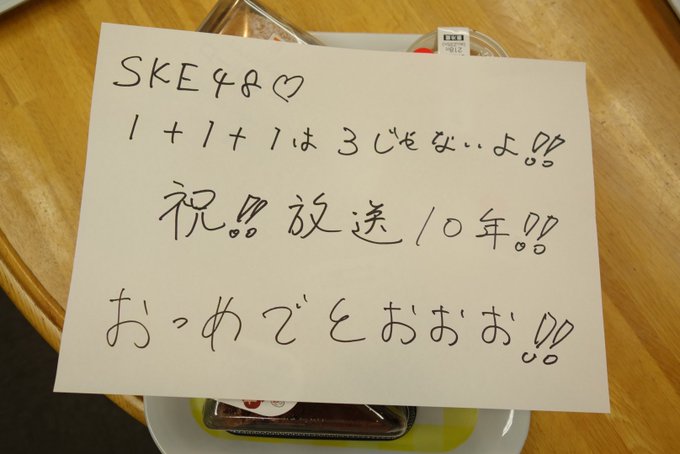 SKE48♡
1+1+1は3じゃないよ!!
祝!!放送10年!!
おっめでとおおお!!